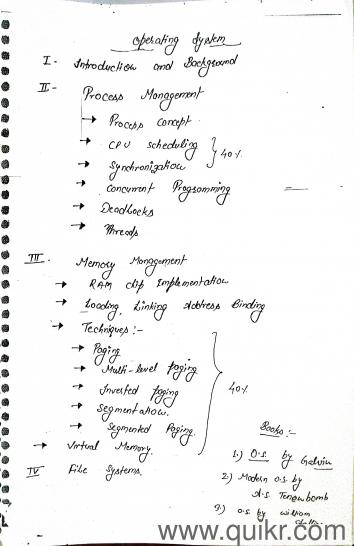 Operating System
I - Introduction and Background
II - Process Management
→ Process Concept
→ CPU Scheduling
→ Synchronization
} 40%
→ Concurrent Programming
→ Deadlocks
→ Threads
III - Memory Management
→ RAM chip Implementation
→ Loading, Linking Address Binding
→ Techniques :-
→ Paging
→ Multi-level paging
→ Inverted paging
→ Segmentation.
→ Segmented Paging.
} 40%
→ Virtual Memory.
IV File Systems.
Books :-
1.) O.S by Galvin
2.) Modern O.S. by
A.S. Tenewbomb
3.) O.S. by William
www.quikr.com